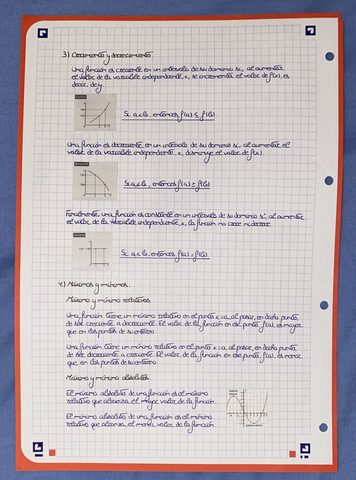 3) Crecimiento y decrecimiento
Una función es creciente en un intervalo de su dominio si, al aumentar
el valor de la variable independiente, x, se incrementa el valor de f(x), es
decir, de y.
Si a<b, entonces f(a) ≤ f(b)
Una función es decreciente en un intervalo de su dominio si, al aumentar el
valor de la variable independiente, x, disminuye el valor de f(x).
Si a<b, entonces f(a) ≥ f(b)
Finalmente, una función es constante en un intervalo de su dominio si, al aumentar
el valor de la variable independiente, x, la función no crece ni decrece
Si a<b, entonces f(a) = f(b)
4) Máximos y mínimos.
Máximo y mínimo relativos
Una función tiene un máximo relativo en el punto x=a, al pasar, en dicho punto,
de ser creciente a decreciente. El valor de la función en ese punto, f(a), es mayor
que en los puntos de su entorno
Una función tiene un mínimo relativo en el punto x=a, al pasar, en dicho punto,
de ser decreciente a creciente. El valor de la función en ese punto, f(a), es menor
que en los puntos de su entorno.
Máximo y mínimo absolutos.
El máximo absoluto de una función es el máximo
relativo que alcanza el mayor valor de la función
El mínimo absoluto de una función es el mínimo
relativo que alcanza el menor valor de la función.